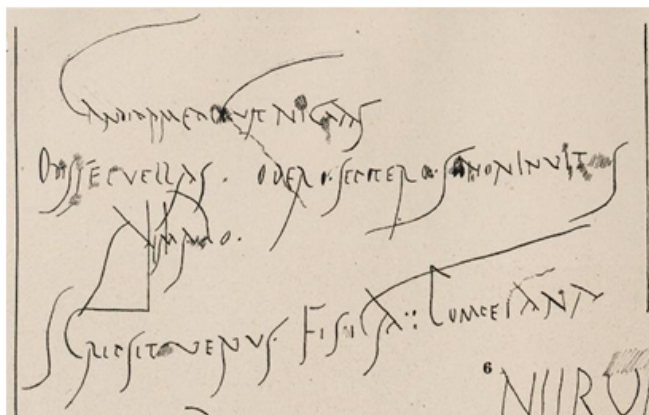 CANDIDA ME DOCVIT NIGRAS
ODISSE PVELLAS . ODERO . SE POTERO . SI NON INVITVS
AMABO .
SCRIPSIT VENVS FISICA : POMPEIANA
6